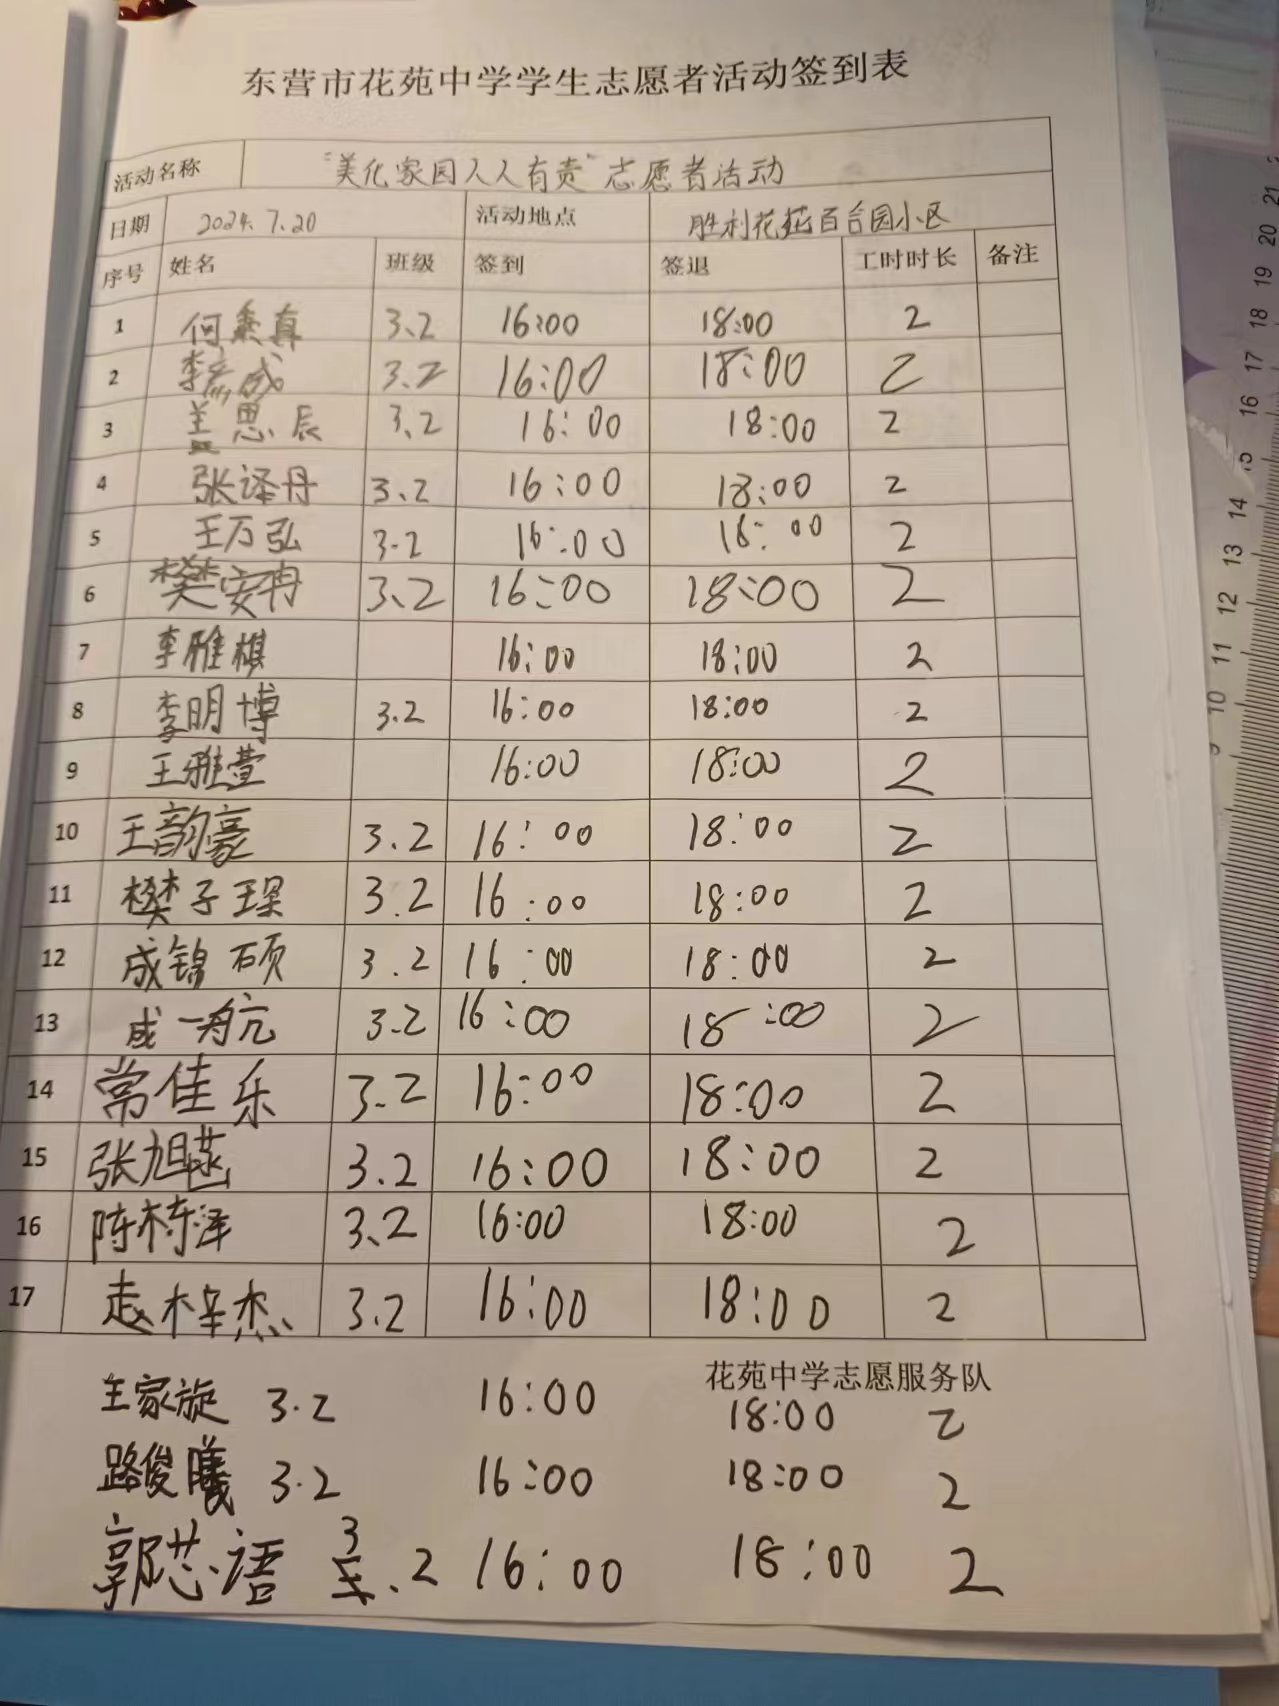 东营市花苑中学学生志愿者活动签到表
活动名称 “美化家园人人有责”志愿者活动
日期 2024.7.20 活动地点 胜利花苑百合园小区
序号 姓名 班级 签到 签退 工时时长 备注
1 何秉真 3.2 16:00 18:00 2
2 李彦成 3.2 16:00 18:00 2
3 盖思辰 3.2 16:00 18:00 2
4 张译丹 3.2 16:00 18:00 2
5 王万弘 3.2 16:00 16:00 2
6 樊安冉 3.2 16:00 18:00 2
7 李雅棋 16:00 18:00 2
8 李明博 3.2 16:00 18:00 2
9 王雅萱 16:00 18:00 2
10 王韵豪 3.2 16:00 18:00 2
11 樊子琛 3.2 16:00 18:00 2
12 成锦硕 3.2 16:00 18:00 2
13 成一航 3.2 16:00 18:00 2
14 常佳乐 3.2 16:00 18:00 2
15 张旭菡 3.2 16:00 18:00 2
16 陈梼泽 3.2 16:00 18:00 2
17 赵梓杰 3.2 16:00 18:00 2
花苑中学志愿服务队
王家旋 3.2 16:00 18:00 2
路俊曦 3.2 16:00 18:00 2
郭芯语 3.2 16:00 18:00 2
21
20
19
18
17
16
15
14
13
12
11
10
9